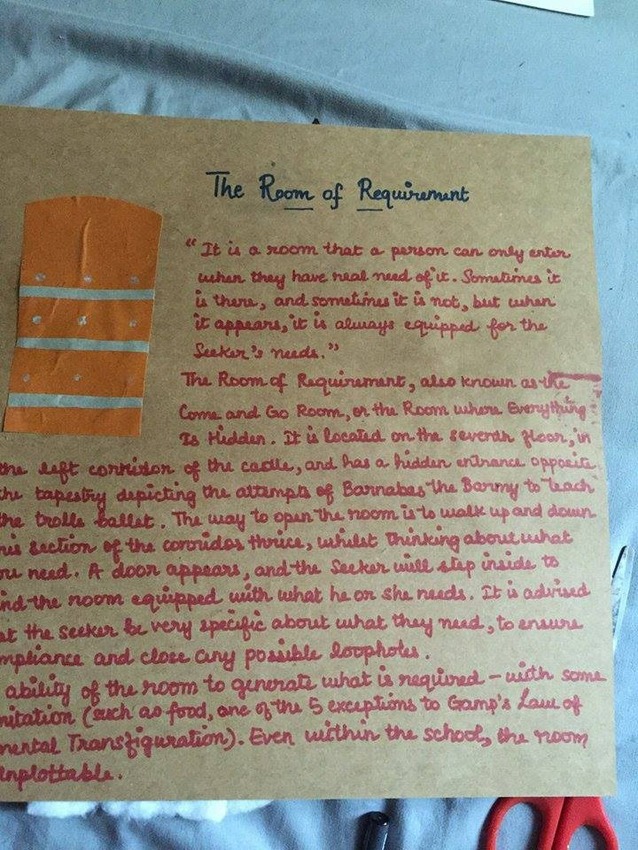 The Room of Requirement
"It is a room that a person can only enter
when they have real need of it. Sometimes it
is there, and sometimes it is not, but when
it appears, it is always equipped for the
Seeker's needs."
The Room of Requirement, also known as the
Come and Go Room, or the Room where Everything
Is Hidden. It is located on the seventh floor, in
the left corridor of the castle, and has a hidden entrance opposite
the tapestry depicting the attempts of Barnabas the Barmy to teach
the trolls ballet. The way to open the room is to walk up and down
his section of the corridos thrice, whilst thinking about what
ou need. A door appears, and the Seeker will step inside to
ind the room equipped with what he or she needs. It is advised
at the seeker be very specific about what they need, to ensure
mpliance and close any possible loopholes.
ability of the room to generate what is required - with some
mitation (such as food, one of the 5 exceptions to Gamp's Law of
mental Transfiguration). Even within the school, the room
unplottable.